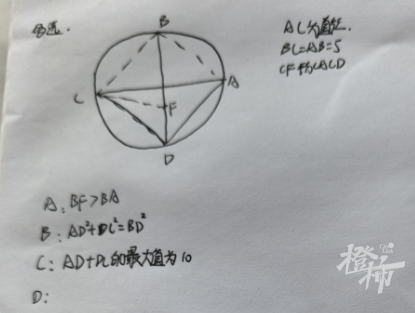 多选.
B
A
C
F
D
AC为直径.
BC=AB=5
CF平分∠ACD
A: BF>BA
B: AD²+DC²=BD²
C: AD+DC的最大值为10
D:
橙柿